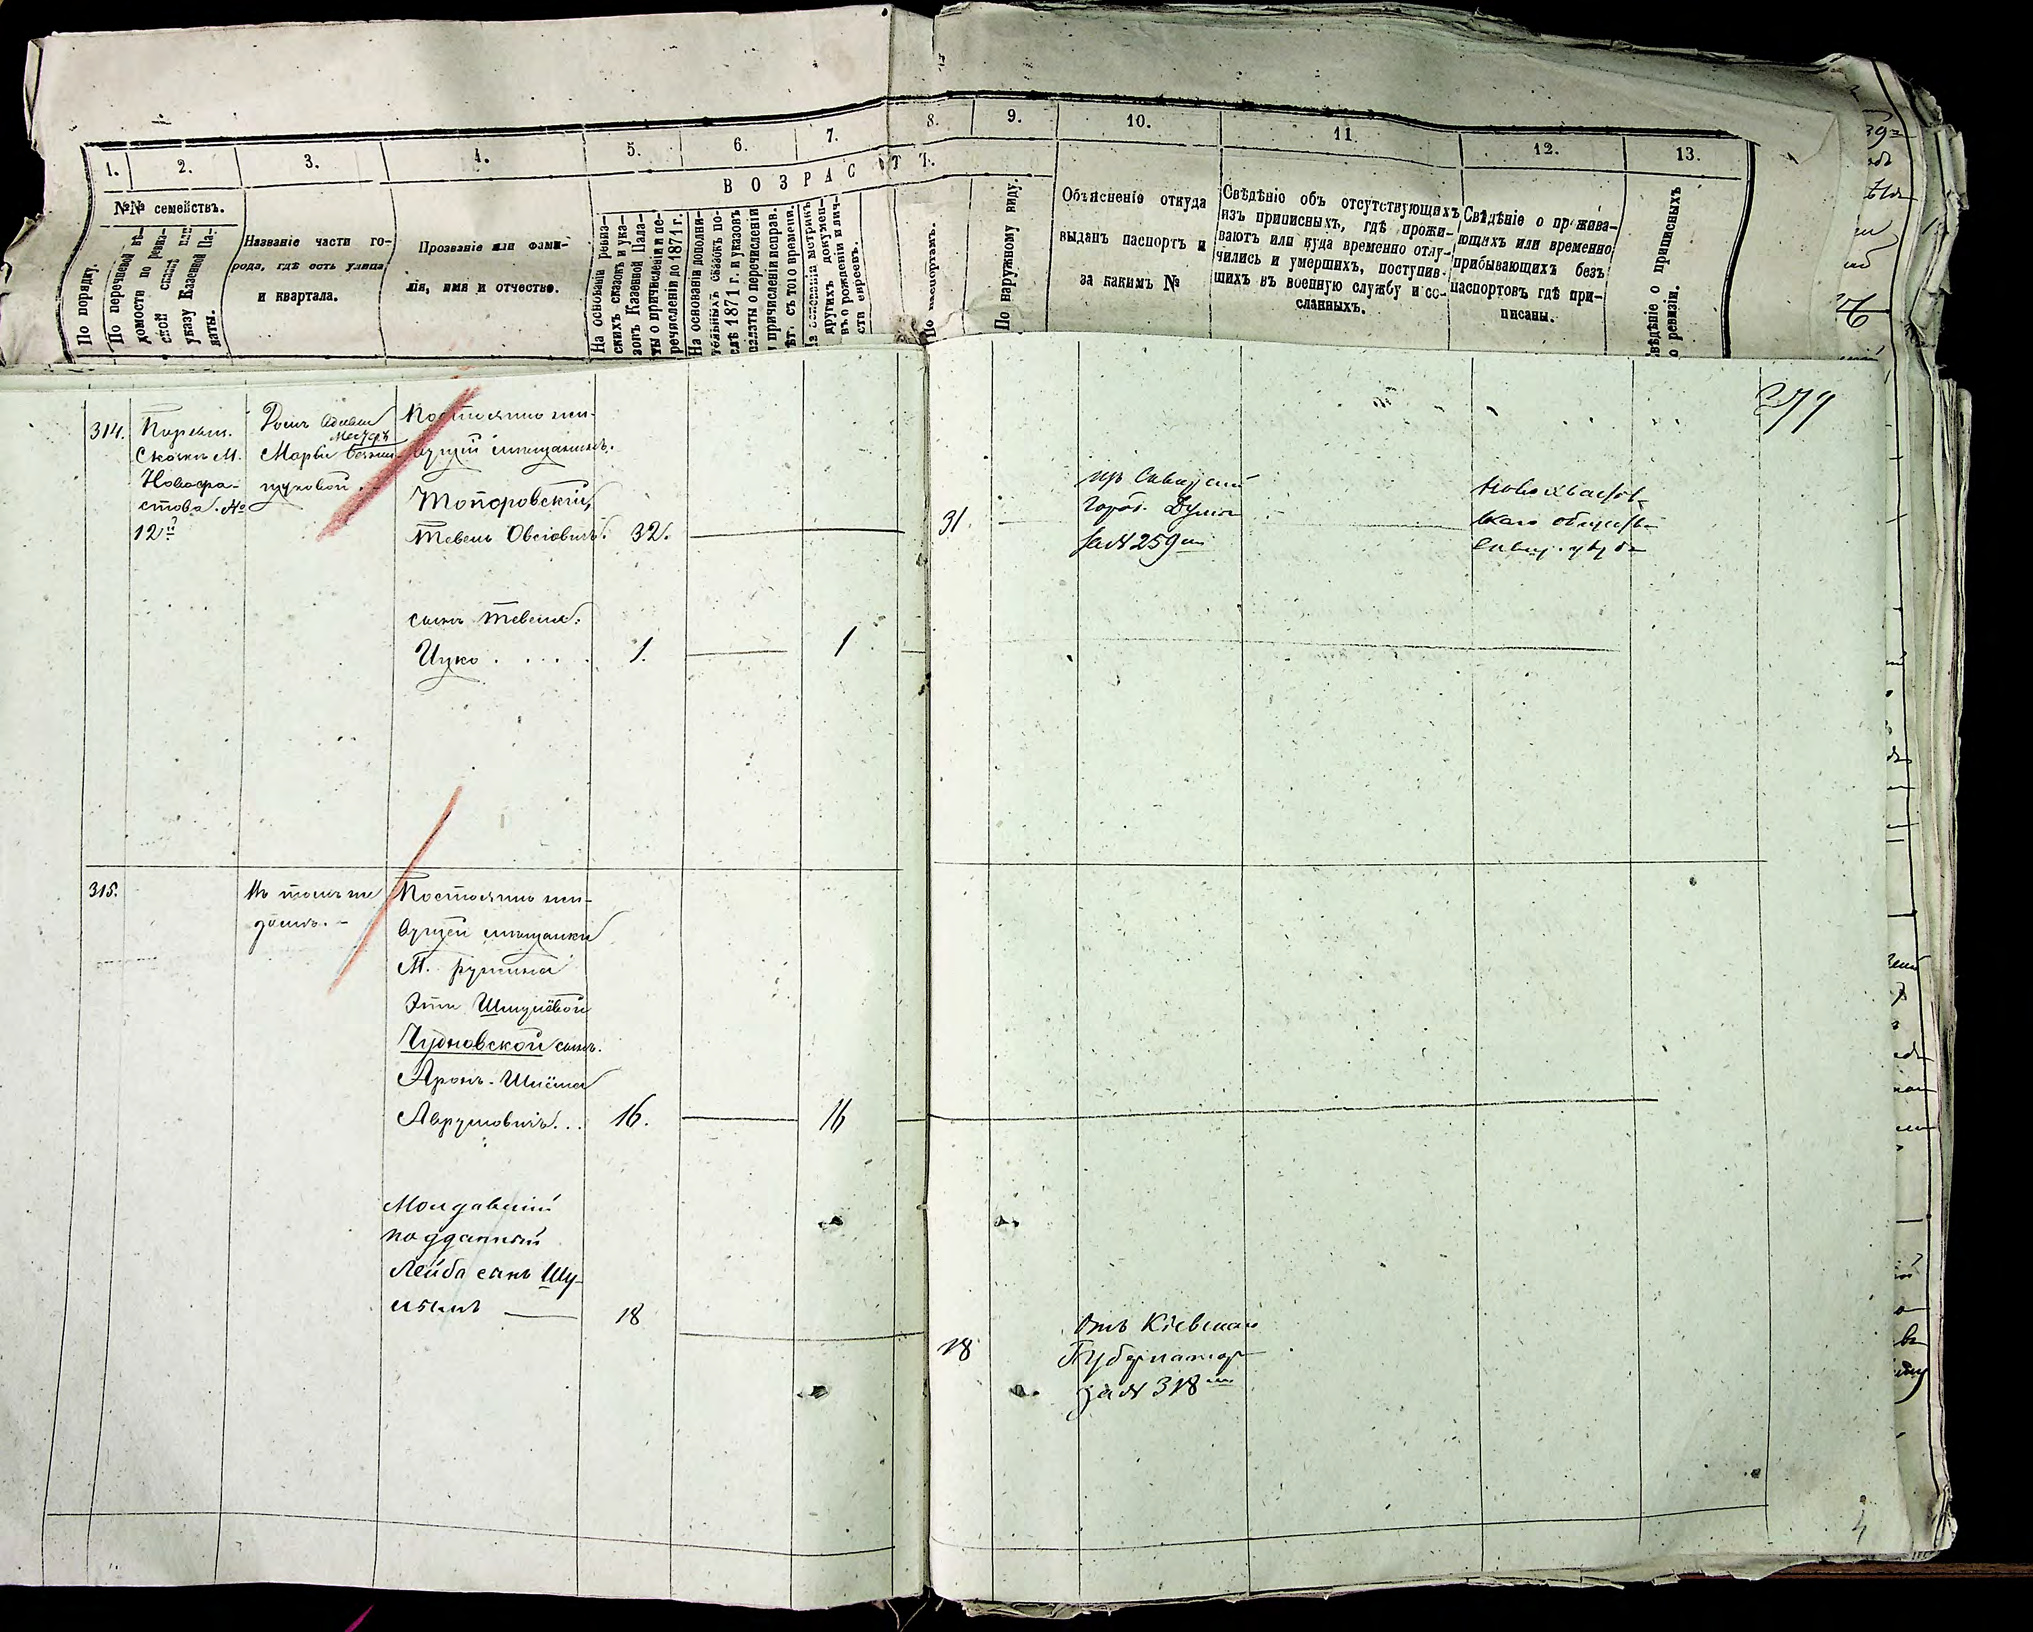 1. 2. 3. 4. 5. 6. 7. 8. 9. 10. 11. 12. 13.
ВОЗРАСТЪ.
№№ семействъ.
По порядку.
По перечневой вѣ-
домости по ревиз-
ской сказкѣ или
указу Казенной Па-
латы.
Названіе части го-
рода, гдѣ есть улица
и квартала.
Прозваніе или фами-
лія, имя и отчество.
На основаніи ревиз-
скихъ сказокъ и ука-
зовъ Казенной Пала-
ты о причисленіи и пе-
речисленіи до 1871 г.
На основаніи дополни-
тельныхъ сказокъ по-
слѣ 1871 г. и указовъ
палаты о перечисленіи
и причисленіи исправ.
лѣт. съ того времени.
На основаніи метрикъ
другихъ докумен-
въ о рожденіи и лич-
сти евреевъ.
По паспортамъ.
По наружному виду.
Объясненіе откуда
выданъ паспортъ и
за какимъ №
Свѣдѣніе объ отсутствующихъ
изъ приписныхъ, гдѣ прожи-
ваютъ или куда временно отлу-
чились и умершихъ, поступив-
шихъ въ военную службу и со-
сланныхъ.
Свѣдѣніе о прожива-
ющихъ или временно
прибывающихъ безъ
паспортовъ гдѣ при-
писаны.
Свѣдѣніе о приписныхъ
по ревизіи.
279
314.
Сказкѣ М.
Новофа-
стова. №
12й
Домъ
Марьи
Постоянно жи-
вущій мѣщанинъ.
Топоровскій,
Тевель Овсіовичъ. 32.
31.
изъ Сквирской
Город. Думы
за № 259м
Новохвастов-
скаго общества
Сквир. уѣзда
сынъ Тевеля.
Ицко . . . . 1. 1
315.
Въ томъ же
домѣ. -
Постоянно жи-
вущей мѣщанки
М. Ружина
Эти Шмулёвой
Чудновской сынъ.
Аронъ-Шлёма
Аврумовичъ... 16. 16
Молдавскій
подданный
Лейба сынъ Шу-
18
18
Отъ Кіевскаго
Губернатора
за № 318м